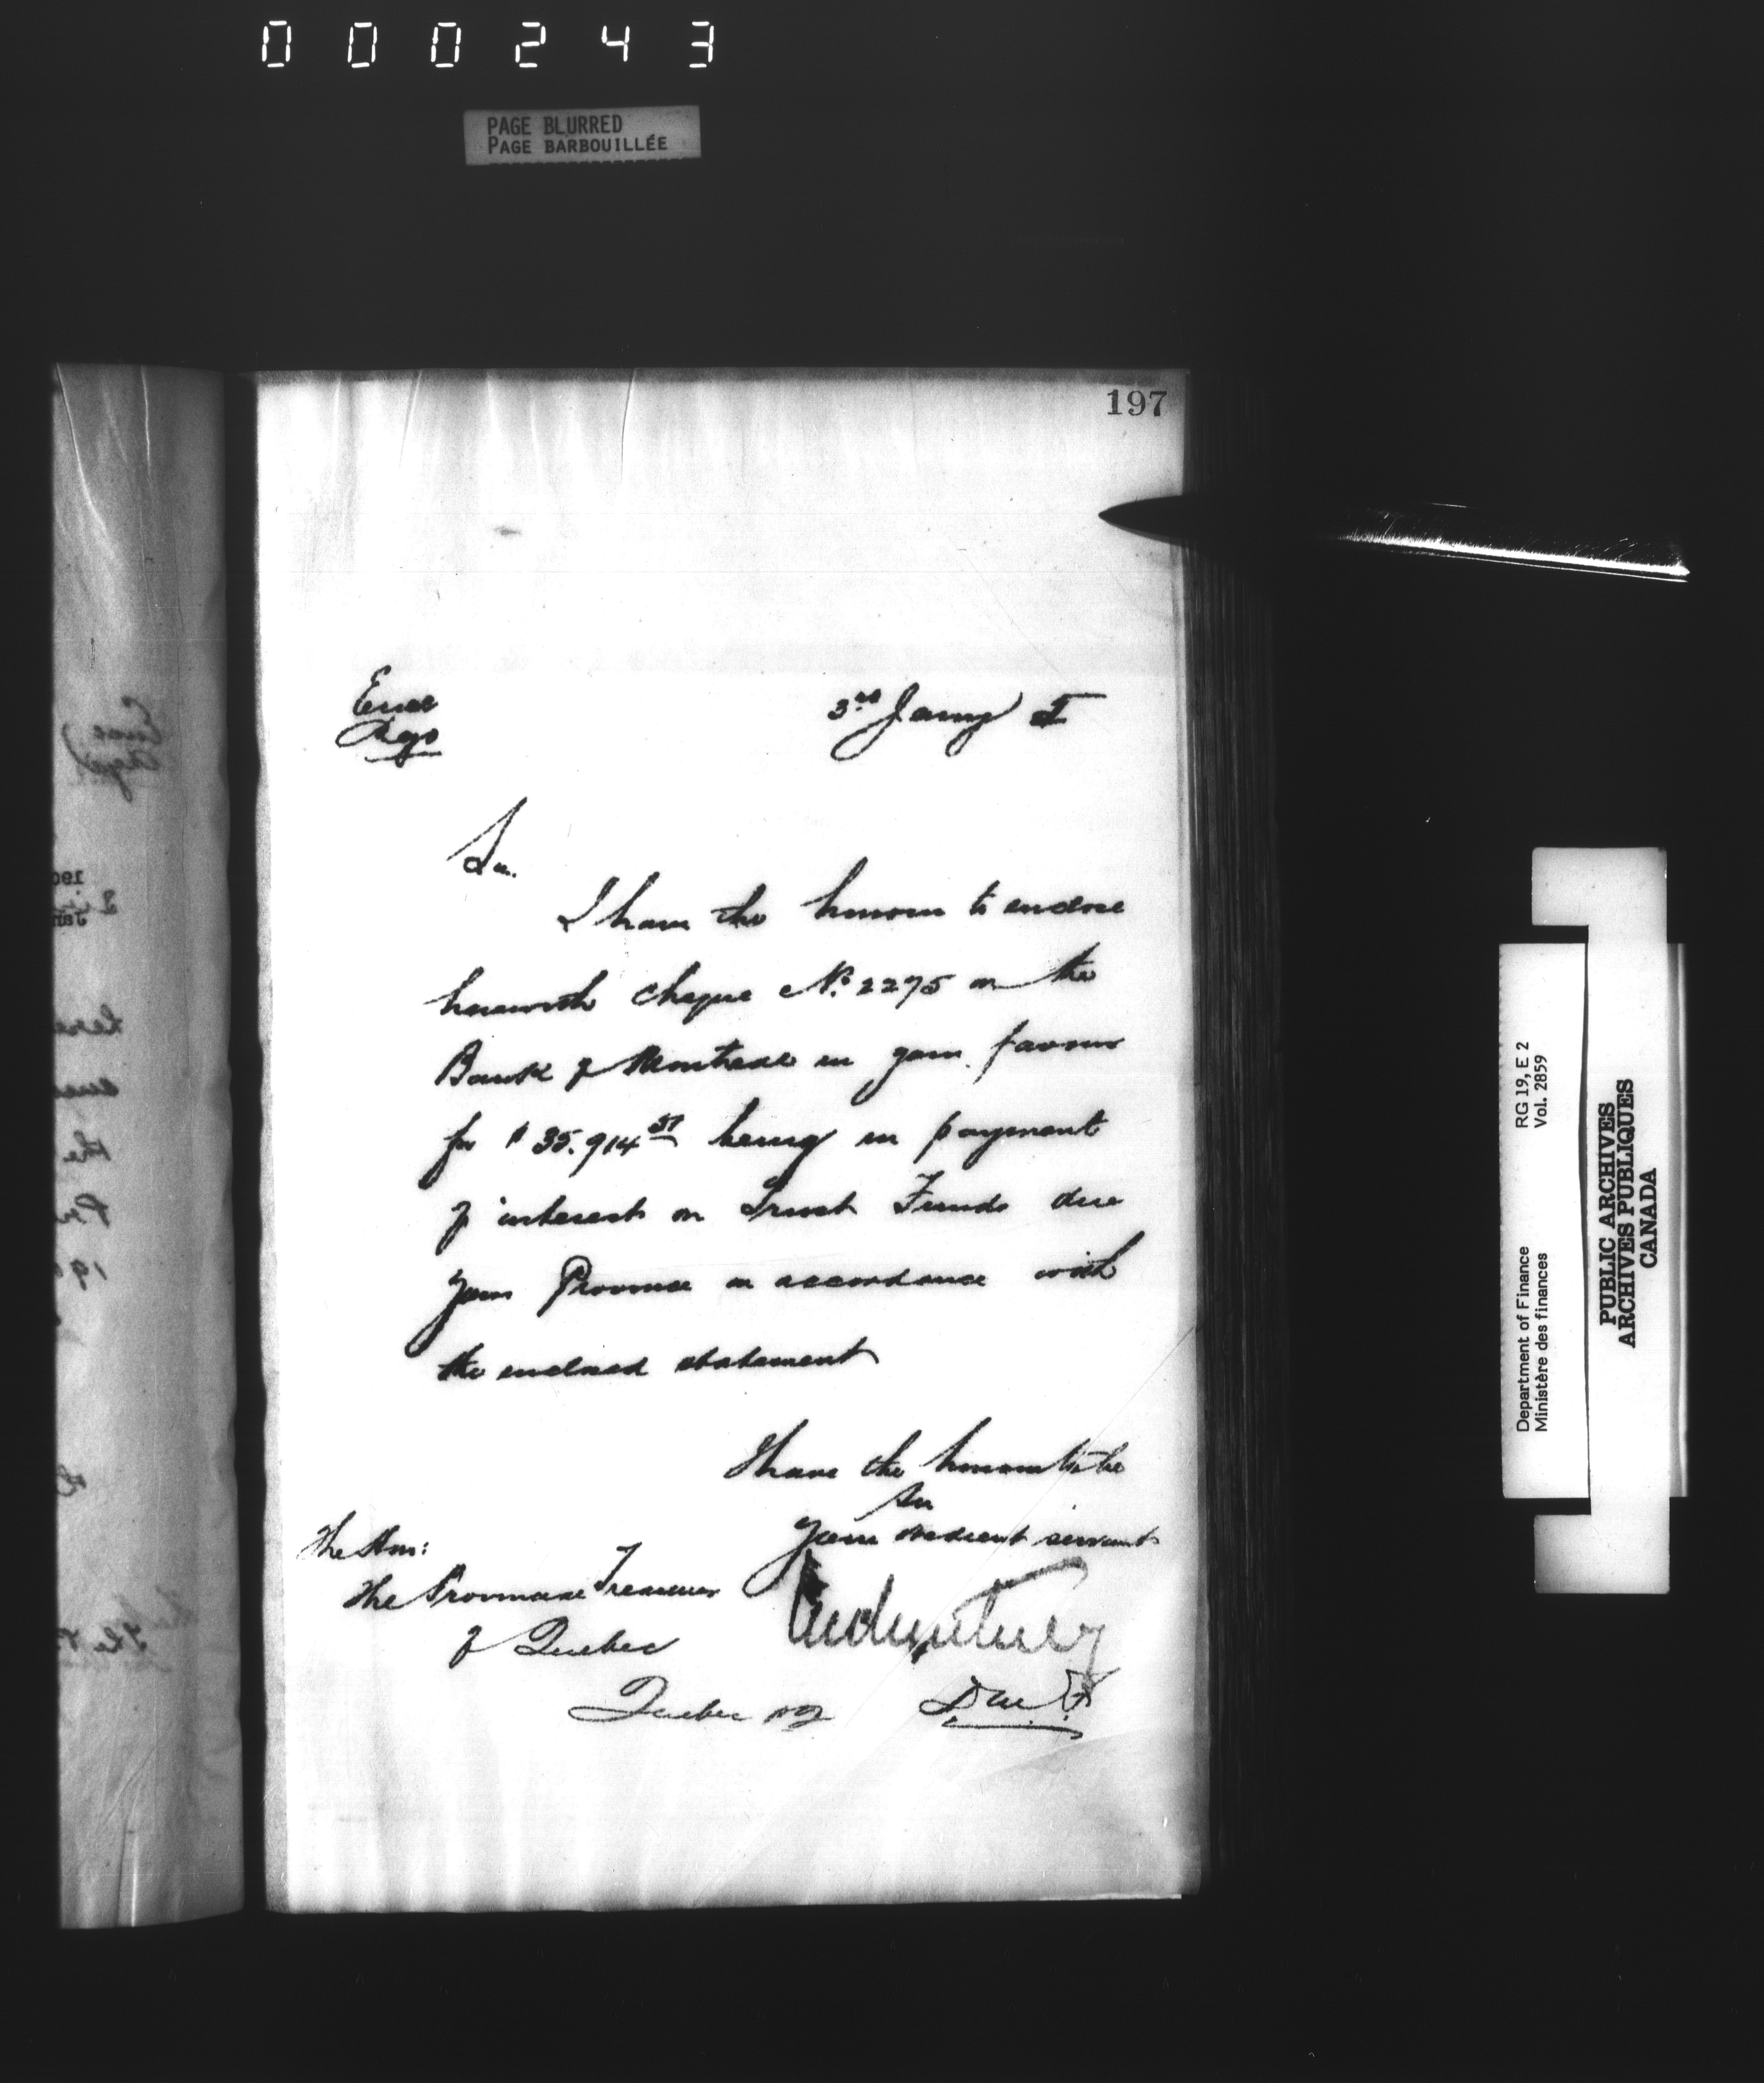 000243
PAGE BLURRED
PAGE BARBOUILLÉE
197
Encl
Regd
3rd Jany
Sir.
I have the honour to enclose
herewith cheque No. 2275 on the
Bank of Montreal in your favour
for $35.914 57 being in payment
of interest on Trust Funds due
your Province in accordance with
the enclosed statement
I have the honour to be
Sir
Your obedient servant
The Hon:
The Provincial Treasurer
of Quebec
Quebec PQ
D M F
Department of Finance
Ministère des finances
RG 19, E 2
Vol. 2859
PUBLIC ARCHIVES
ARCHIVES PUBLIQUES
CANADA